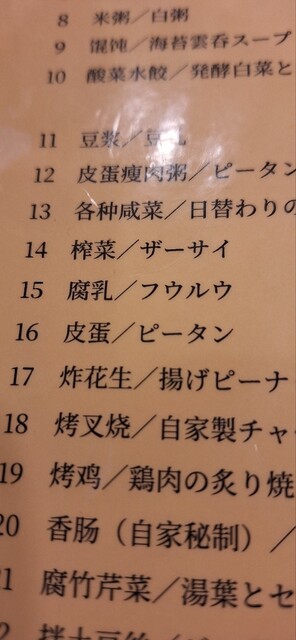 8 米粥／白粥
9 馄饨／海苔雲呑スープ
10 酸菜水餃／発酵白菜と
11 豆浆／豆乳
12 皮蛋瘦肉粥／ピータン
13 各种咸菜／日替わりの
14 榨菜／ザーサイ
15 腐乳／フウルウ
16 皮蛋／ピータン
17 炸花生／揚げピーナ
18 烤叉烧／自家製チャ
19 烤鸡／鶏肉の炙り焼
20 香肠（自家秘制）／
21 腐竹芹菜／湯葉とセ
2 拌土豆